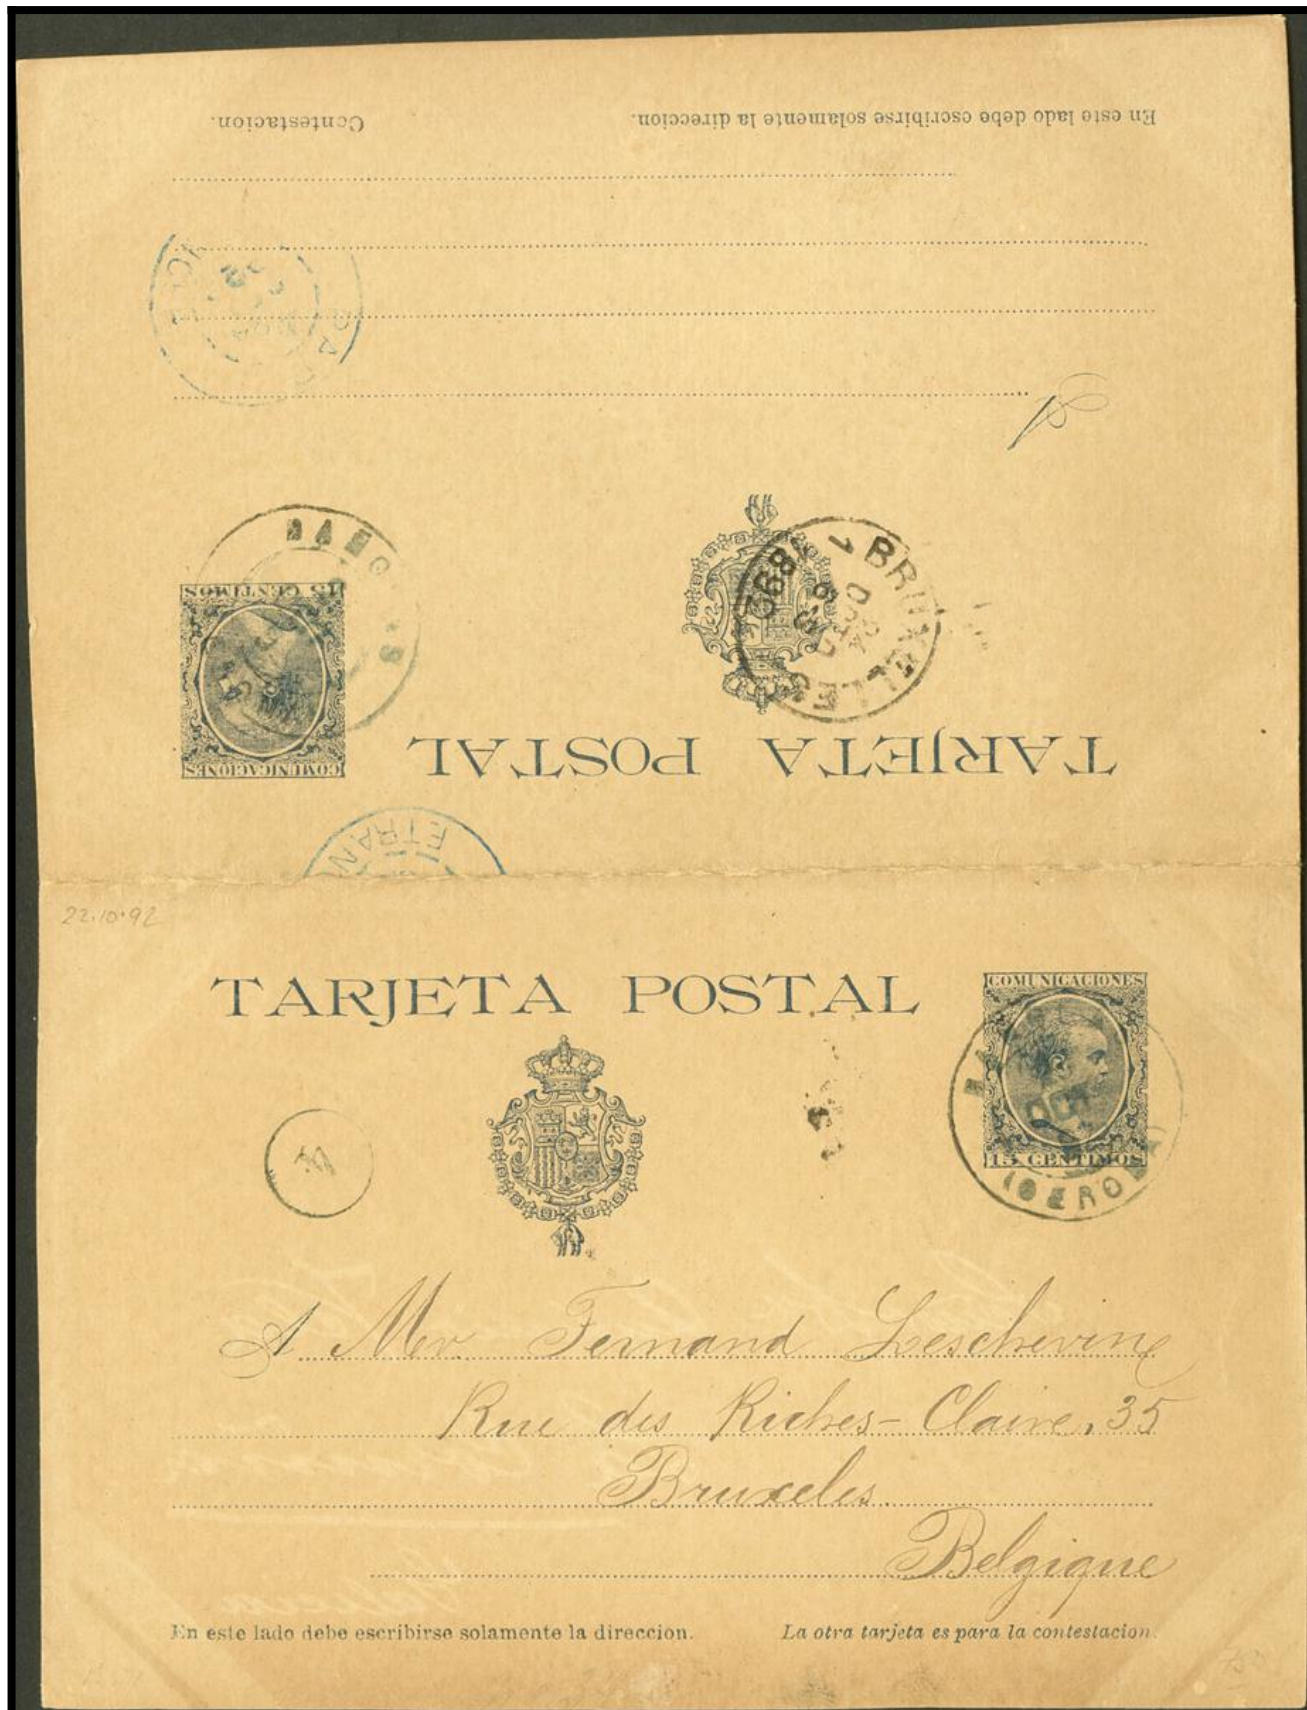 En este lado debe escribirse solamente la direccion.
Contestacion.
BRUXELLES 1
1892
TARJETA POSTAL
15 CENTIMOS
COMUNICACIONES
ETRAN
22.10.92
TARJETA POSTAL
COMUNICACIONES
15 CENTIMOS
A Mr. Fernand Leschevin
Rue des Riches-Claire, 35
Bruxeles.
Belgique
En este lado debe escribirse solamente la direccion.
La otra tarjeta es para la contestacion.